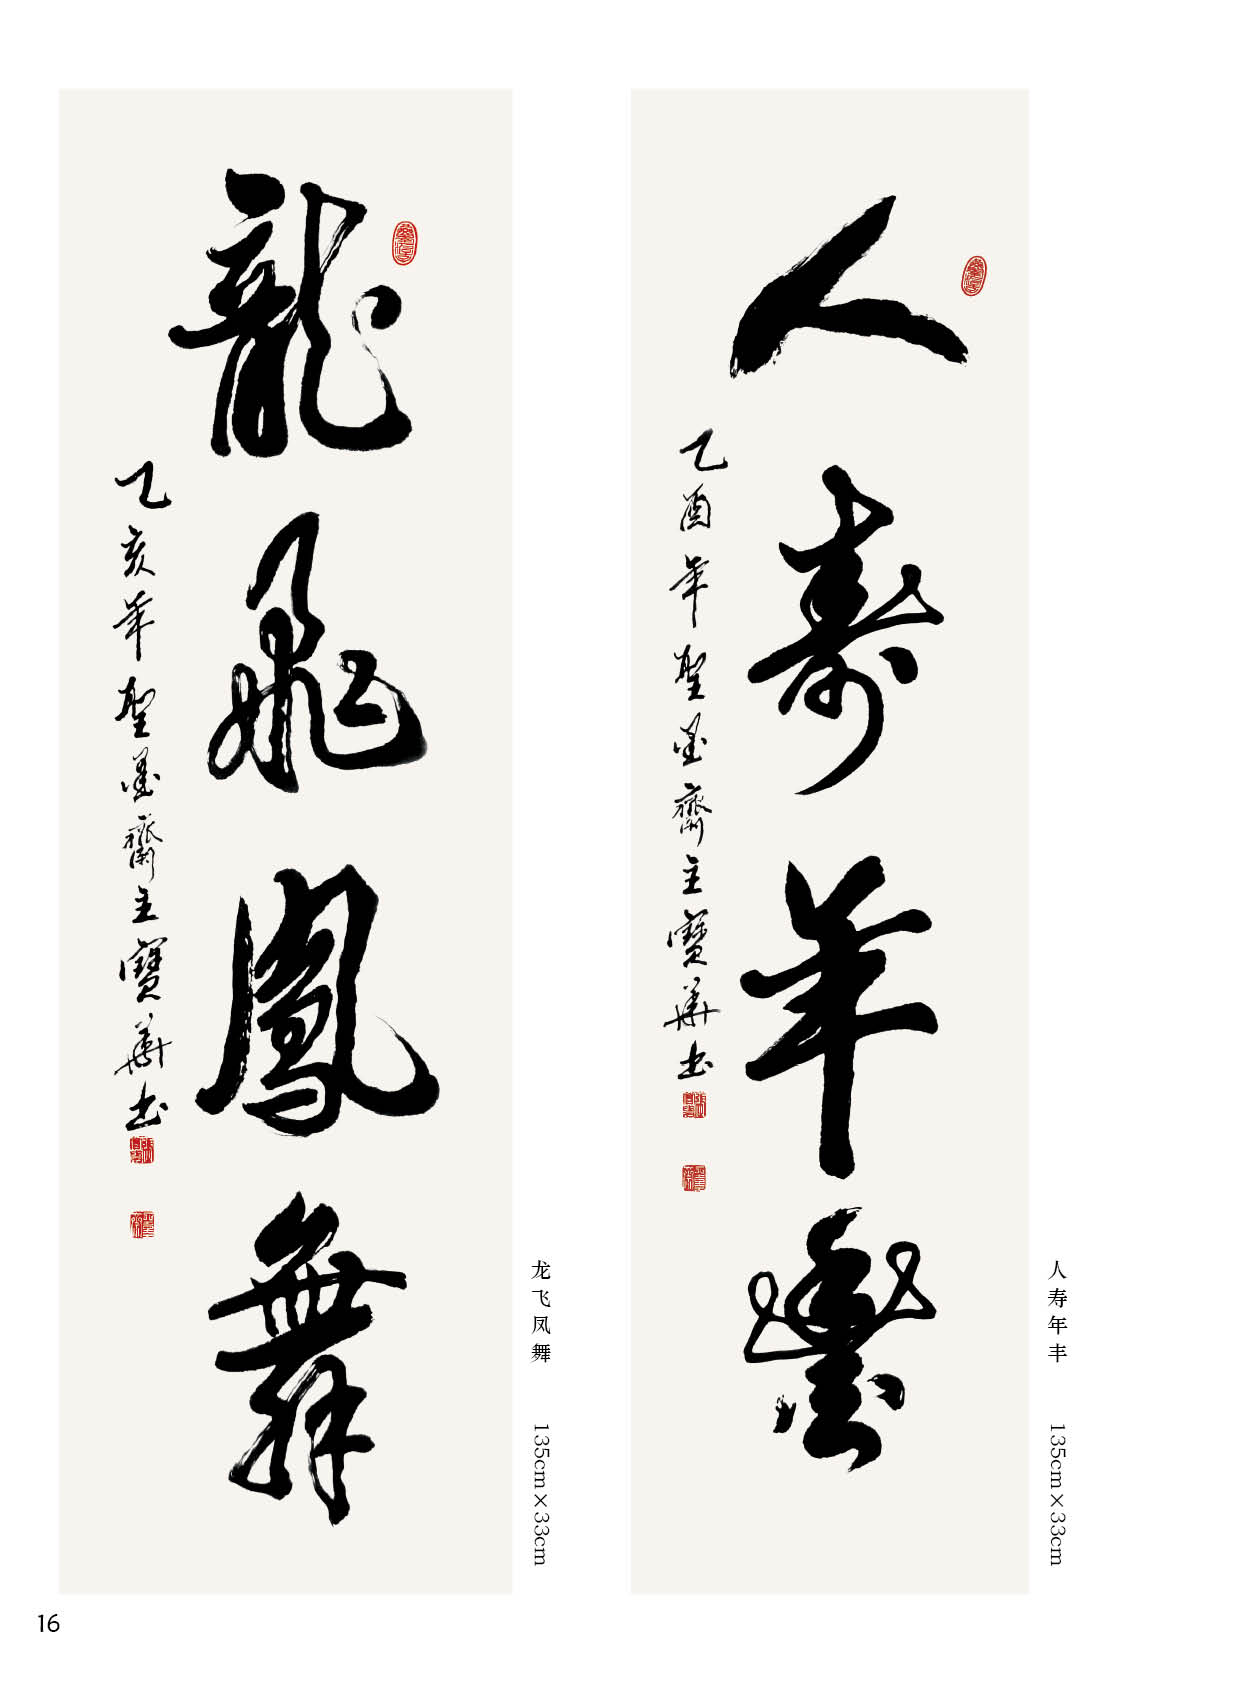 人壽年豐
乙酉年聖墨齋主寶華书
人寿年丰
135cm×33cm
龍飛鳳舞
乙亥年聖墨齋主寶華书
龙飞凤舞
135cm×33cm
16